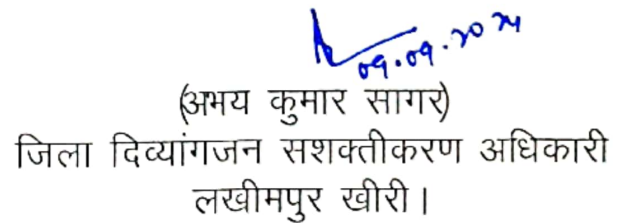 09.09.2024
(अभय कुमार सागर)
जिला दिव्यांगजन सशक्तीकरण अधिकारी
लखीमपुर खीरी।